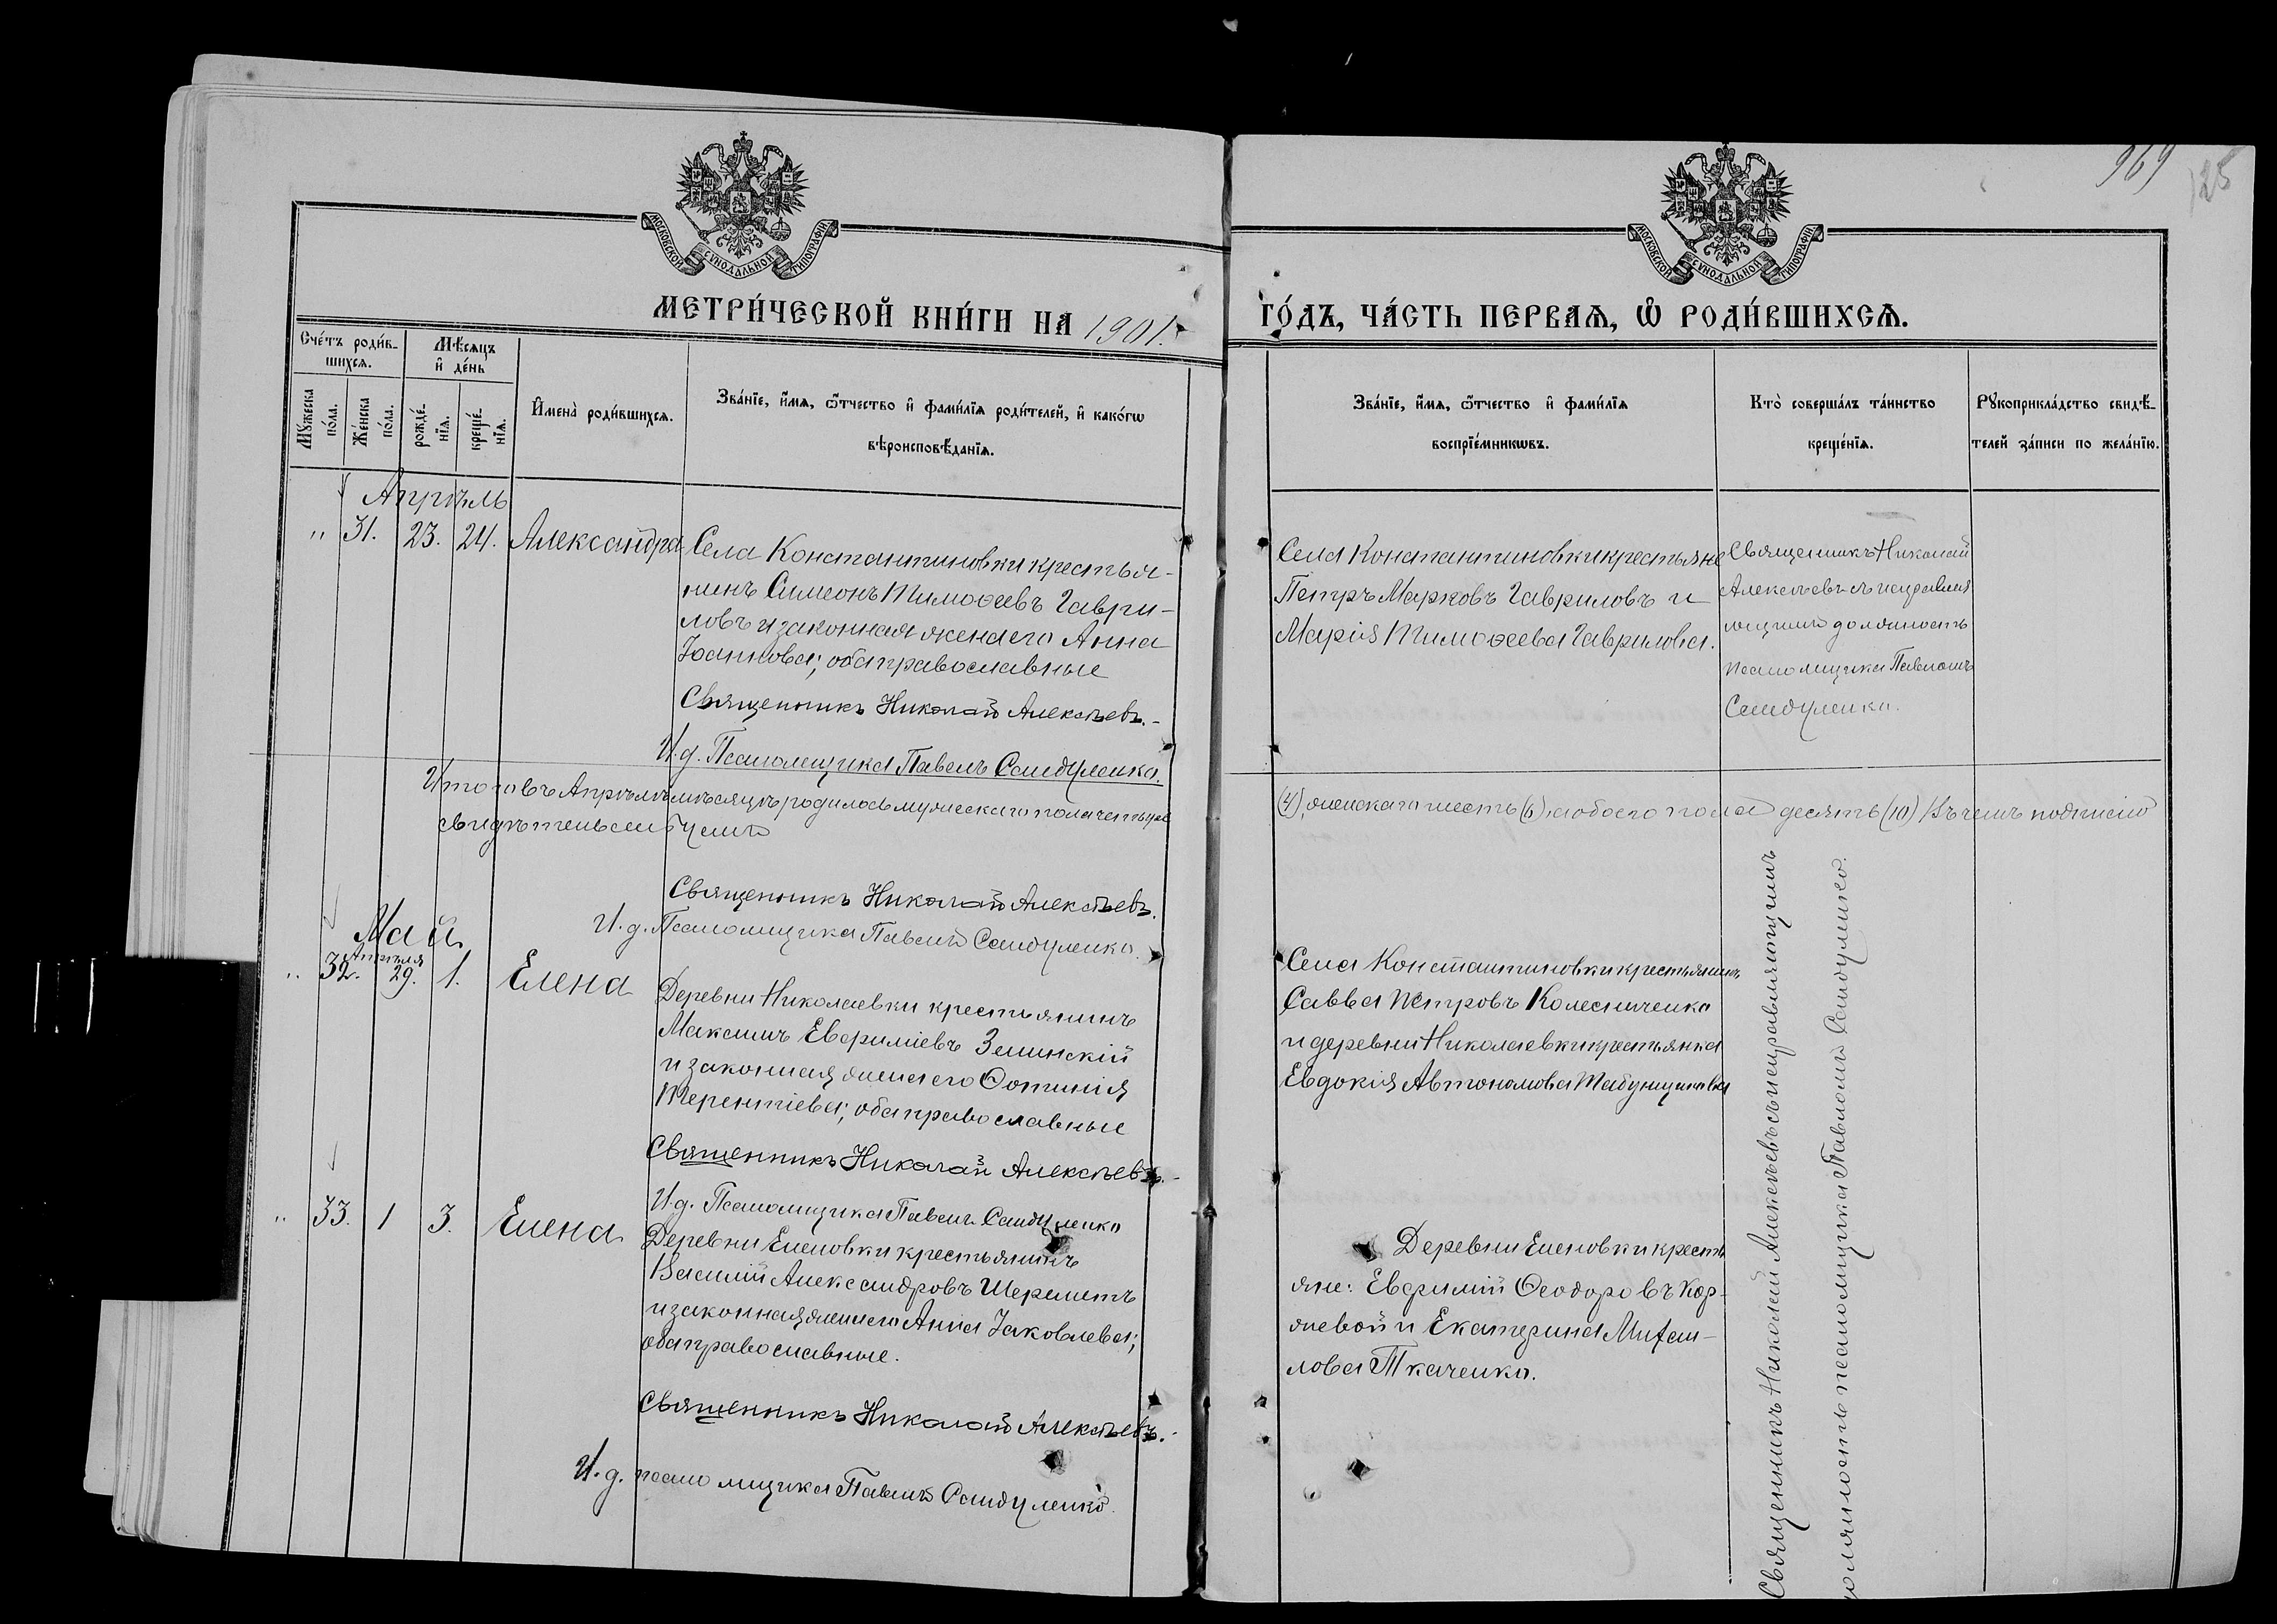 969
125
МОСКОВСКОЙ СѴНОДАЛЬНОЙ ТИПОГРАФІИ
МОСКОВСКОЙ СѴНОДАЛЬНОЙ ТИПОГРАФІИ
МЕТРИ́ЧЕСКОЙ КНИ́ГИ НА 1901.
ГО́ДЪ, ЧА́СТЬ ПЕРВАѦ, Ѽ РОДИ́ВШИХСѦ.
Сче́тъ роди́в-
шихсѧ.
Мꙋ́жеска
по́ла.
Же́нска
по́ла.
Мѣ́сѧцъ
и҆ де́нь
рожде́-
нїѧ.
креще́-
нїѧ.
И҆мена̀ роди́вшихсѧ.
Зва́нїе, и҆́мѧ, ѻ҆́тчество и҆ фами́лїѧ роди́телей, и҆ како́гѡ
вѣроисповѣ́данїѧ.
Зва́нїе, и҆́мѧ, ѻ҆́тчество и҆ фами́лїѧ
воспрїе́мникѡвъ.
Кто̀ соверша́лъ та́инство
креще́нїѧ.
Рꙋкоприкла́дство свидѣ́-
телей за́писи по жела́нїю.
Апрѣль
" 31. 23. 24. Александра
Села Константиновки крестья-
нинъ Симеонъ Тимоѳеевъ Гаври-
ловъ и законная жена его Анна
Іоаннова; оба православные
Священникъ Николай Алексѣевъ.-
И.д. Псаломщика Павелъ Сандуленко.
Села Константиновки крестьяне
Петръ Марковъ Гавриловъ и
Марія Тимоѳеева Гаврилова.
Священникъ Николай
Алексѣевъ съ исправля
ющимъ должность
псаломщика Павломъ
Сандуленко.
Итого въ Апрѣлѣ мѣсяцѣ родилось мужескаго пола четыре
(4), женскаго шесть (6), а обоего пола десять (10) Въ чемъ подписью
свидѣтельствуемъ
Священникъ Николай Алексѣевъ.
И.д. Псаломщика Павелъ Сандуленко.
Май
Апрѣля
" 32. 29. 1. Елена
Деревни Николаевки крестьянинъ
Максимъ Евфиміевъ Зелинскій
и законная жена его Фотинія
Терентіева; оба православные
Священникъ Николай Алексѣевъ.-
И.д. Псаломщика Павелъ Сандуленко
Села Константиновки крестьянинъ
Савва Петровъ Колесниченко
и деревни Николаевки крестьянка
Евдокія Автономова Табунщикова
" 33. 1 3. Елена
Деревни Еленовки крестьянинъ
Василій Александровъ Шереметъ
и законная жена его Анна Іаковлева;
оба православные.
Священникъ Николай Алексѣевъ.-
И.д. псаломщика Павелъ Сандуленко.
Деревни Еленовки кресть
яне: Евфимій Ѳеодоровъ Кор-
жевой и Екатерина Михаи-
лова Ткаченко.
Священникъ Николай Алексѣевъ съ исправляющимъ
должность псаломщика Павломъ Сандуленко.